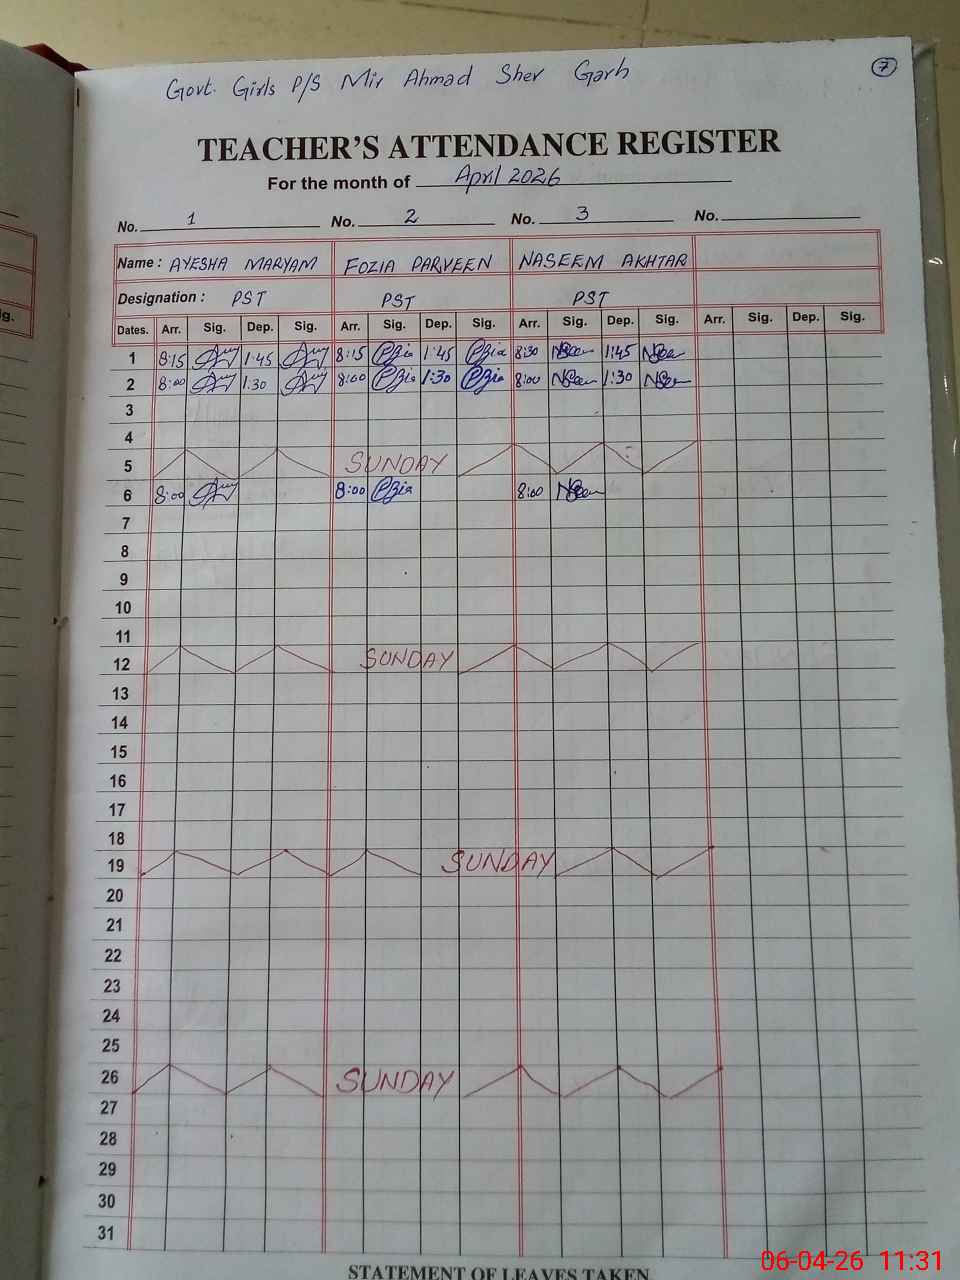 Govt. Girls P/S Mir Ahmad Sher Garh
7
TEACHER'S ATTENDANCE REGISTER
For the month of April 2026
No. 1 No. 2 No. 3 No.
Name : AYESHA MARYAM FOZIA PARVEEN NASEEM AKHTAR
Designation : PST PST PST
Dates. Arr. Sig. Dep. Sig. Arr. Sig. Dep. Sig. Arr. Sig. Dep. Sig. Arr. Sig. Dep. Sig.
1 8:15 1:45 8:15 1:45 8:30 1:45
2 8:00 1:30 8:00 1:30 8:00 1:30
3
4
5 SUNDAY
6 8:00 8:00 8:00
7
8
9
10
11
12 SUNDAY
13
14
15
16
17
18
19 SUNDAY
20
21
22
23
24
25
26 SUNDAY
27
28
29
30
31
STATEMENT OF LEAVES TAKEN
ig.
06-04-26 11:31